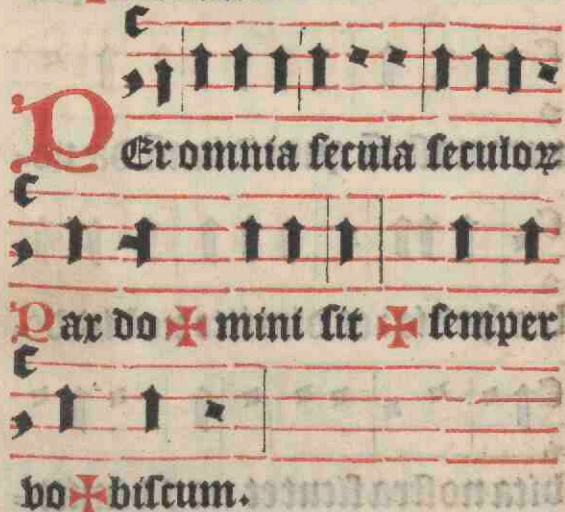 PEr omnia ſecula ſeculoꝝ
Pax do ✠ mini ſit ✠ ſemper
vo✠biſcum.